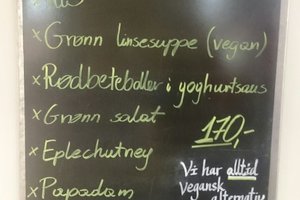 x Grønn linsesuppe (vegan)
x Rødbeteboller i yoghurtsaus
x Grønn salat
170,-
x Eplechutney
Vi har alltid
Vegansk
x Papadam
alternativ